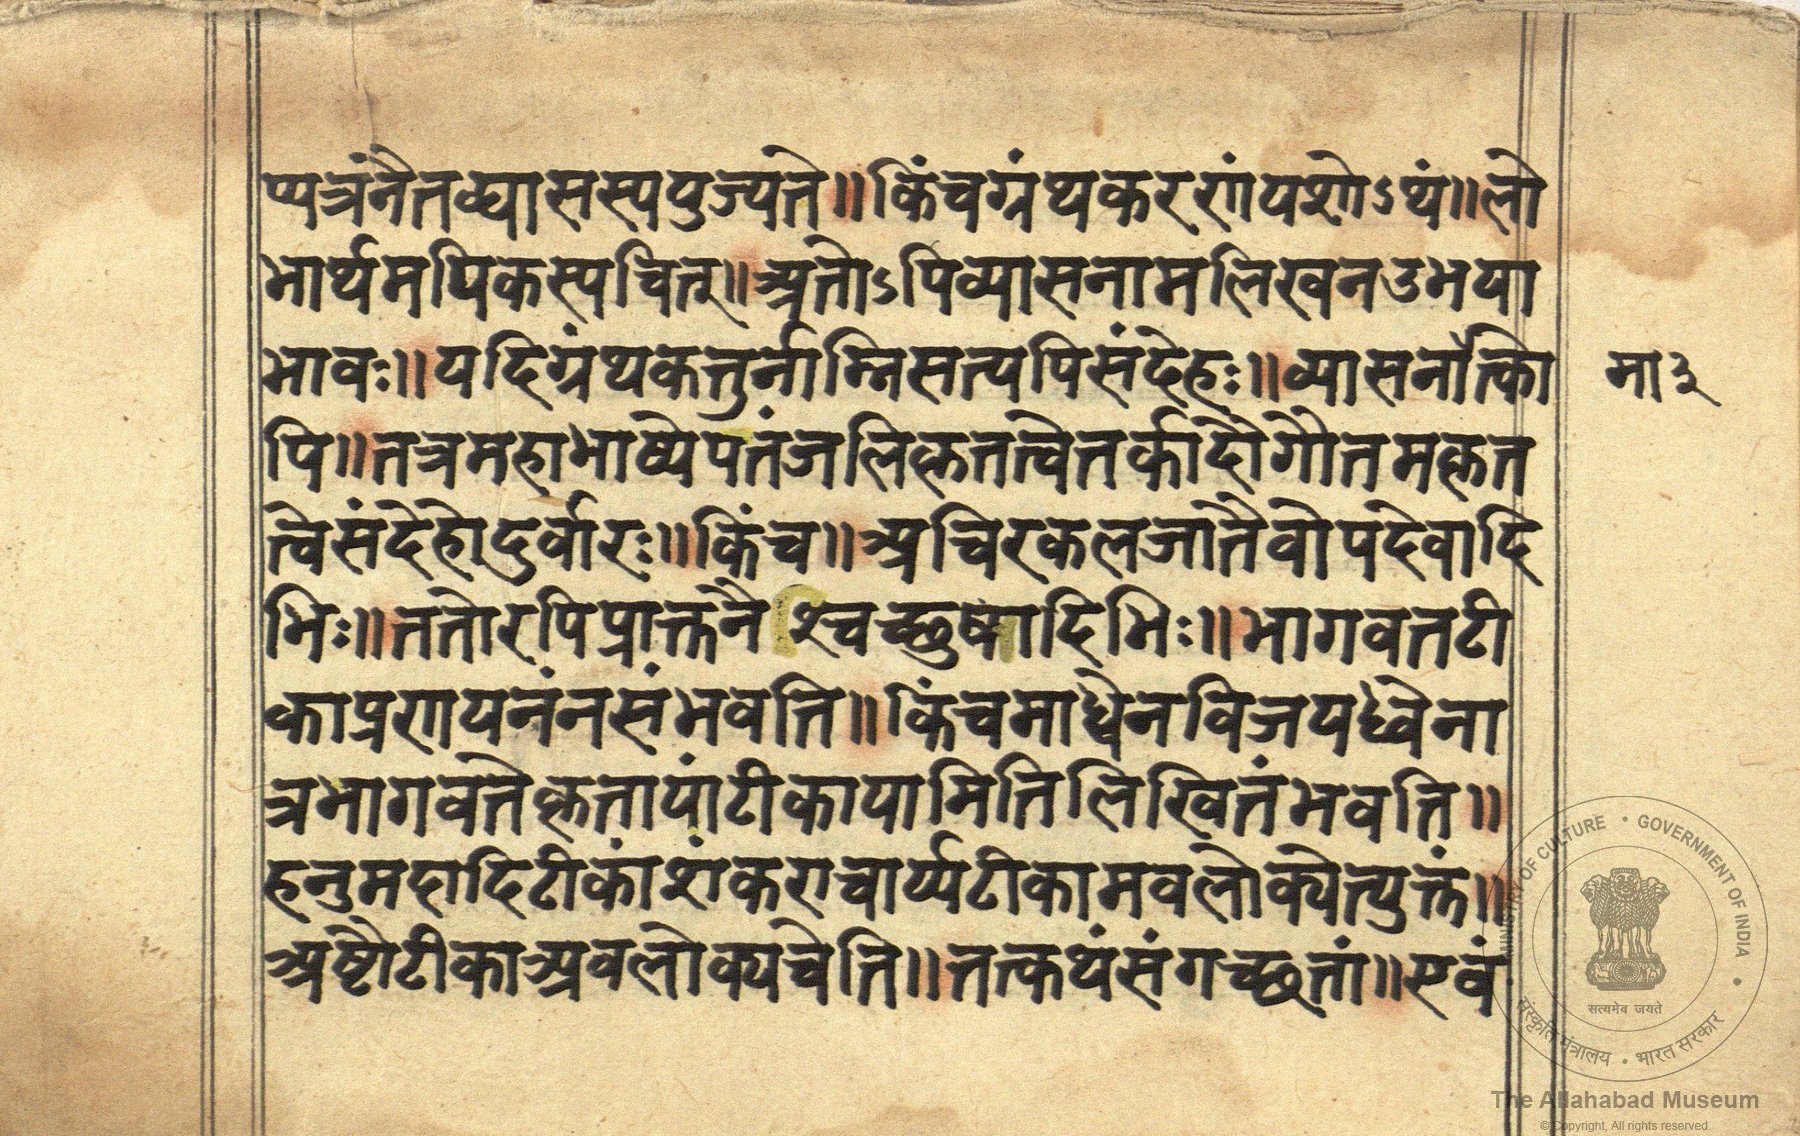 प्पत्रंनैतव्द्यासस्पपुज्यते॥किंचग्रंथकररांयशोऽर्थं॥लो
भार्थमपिकस्पचित्॥अतोऽपिव्यासनामलिखनउभया
भावः॥यदिग्रंथकत्तुर्नाम्निसत्यपिसंदेहः॥व्यासर्नौत्को
मा३
पि॥तत्रमहाभाष्येपतंजलिकृतत्वेतर्कादौगौतमकृत
त्वेसंदेहोदुर्वारः॥किंच॥अचिरकलजातैवोपदेवादि
भिः॥ततोरपिप्राक्तनैश्चच्छुषादिभिः॥भागवतटी
काप्ररायनंनसंभवति॥किंचमाध्वेनविजयध्वेना
त्रभागवतेकृतायांटीकायामितिलिखितंभवति॥
हनुमदादिटीकांशंकराचार्य्यटीकामवलोक्येत्युक्तं॥
अष्टौटीकाअवलोक्यचेति॥तत्कथंसंगच्छतां॥एवं
MINISTRY OF CULTURE • GOVERNMENT OF INDIA
सत्यमेव जयते
संस्कृति मंत्रालय • भारत सरकार
The Allahabad Museum
© Copyright, All rights reserved.